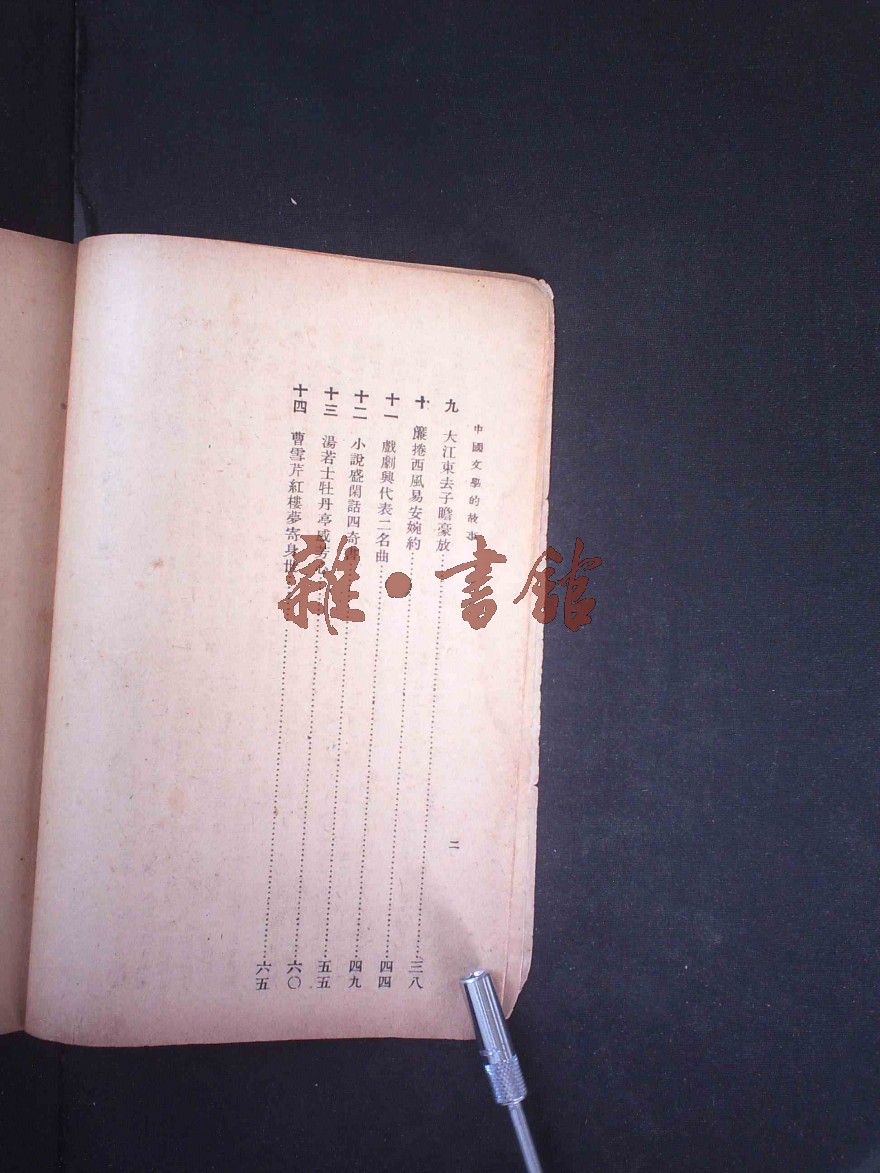 中國文學的故事
二
九 大江東去子瞻豪放……三八
十 簾捲西風易安婉約……四四
十一 戲劇興代表二名曲……四九
十二 小說盛閑話四奇……五五
十三 湯若士牡丹亭感……六〇
十四 曹雪芹紅樓夢寄身世……六五
雜•書館